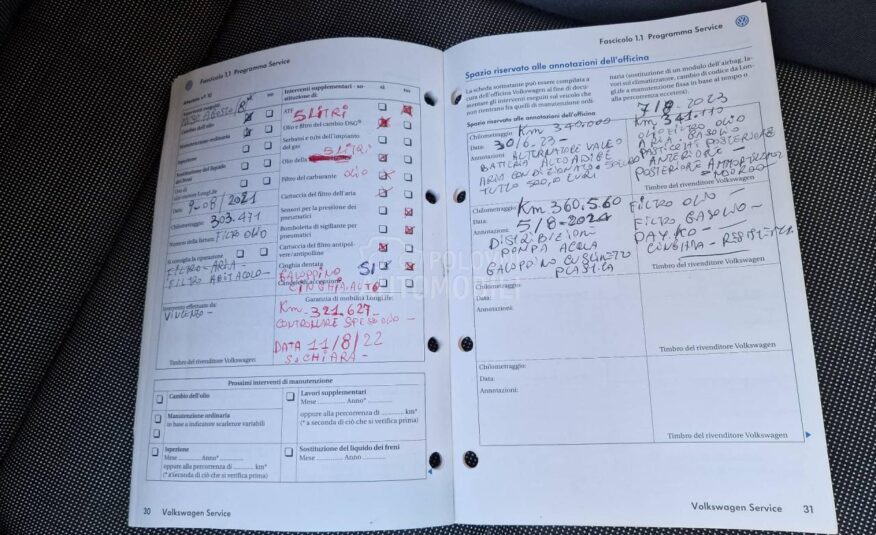 Fascicolo 1.1 Programma Service
Interventi eseguiti
Cambio dell'olio
Manutenzione ordinaria
Ispezione
Sostituzione del liquido
dei freni
Data: 9-08/2021
Chilometraggio: 303.471
Numero della fattura: FILTRO OLIO
Si consiglia la riparazione
FILTRO - ARIA -
FILTRO ABITACOLO -
Intervento effettuato da:
VINCENZO -
Timbro del rivenditore Volkswagen
Interventi supplementari - so-
stituzione di:
sì
no
ATF 5 LITRI
Olio e filtro del cambio DSG®
Serbatoi e tubi dell'impianto
del gas
Olio della 5 LITRI
Filtro del carburante OLIO
Cartuccia del filtro dell'aria
Sensori per la pressione dei
pneumatici
Bomboletta di sigillante per
pneumatici
Cartuccia del filtro antipol-
vere/antipolline
Cinghia dentata SI
GALOPPINO
CINGHIA AUTO
Garanzia di mobilità LongLife:
Km 321.627
CONTROLLARE SPESSO OLIO -
DATA 11/8/22
S. CHIARA -
Prossimi interventi di manutenzione
Cambio dell'olio
Manutenzione ordinaria
in base a indicatore scadenze variabili
Ispezione
Mese ............ Anno* ............
oppure alla percorrenza di ............ km*
(* a seconda di ciò che si verifica prima)
Lavori supplementari
Mese ............ Anno* ............
oppure alla percorrenza di ............ km*
(* a seconda di ciò che si verifica prima)
Sostituzione del liquido dei freni
Mese ............ Anno ............
30 Volkswagen Service
Fascicolo 1.1 Programma Service
Spazio riservato alle annotazioni dell'officina
La scheda sottostante può essere compilata a
cura dell'officina Volkswagen al fine di docu-
mentare gli interventi eseguiti sul veicolo che
non rientrano fra quelli di manutenzione ordi-
naria (sostituzione di un modulo dell'airbag, la-
vori sul climatizzatore, cambio di codice da Lon-
gLife a manutenzione fissa in base al tempo o
alla percorrenza eccetera).
Spazio riservato alle annotazioni dell'officina
Chilometraggio: Km 340.000
Data: 30/6.23-
Annotazioni: ALTERNATORE VALEO
BATTERIA ALTO ADIGE
ARIA CONDIZIONATO
TUTTO 500,0 EURI
7/8-2023
Km 341.110
OLIO FILTRO OLIO
ARIA - GASOLIO
PASTICLIAT POSTERIORE
ANTERIORE -
POSTERIORE
Timbro del rivenditore Volkswagen
Chilometraggio: Km 360.560
Data: 5/8-2024
Annotazioni:
DISTRIBIZIONI
POMPA ACQUA
GALOPPINO CUSLINETTO
PLASTICA
FILTRO OLIO
FILTRO GASOLIO -
DAYKO -
CINGHIA -
Timbro del rivenditore Volkswagen
Chilometraggio:
Data:
Annotazioni:
Timbro del rivenditore Volkswagen
Chilometraggio:
Data:
Annotazioni:
Timbro del rivenditore Volkswagen
Volkswagen Service 31
POLOVNI
AUTOMOBILI